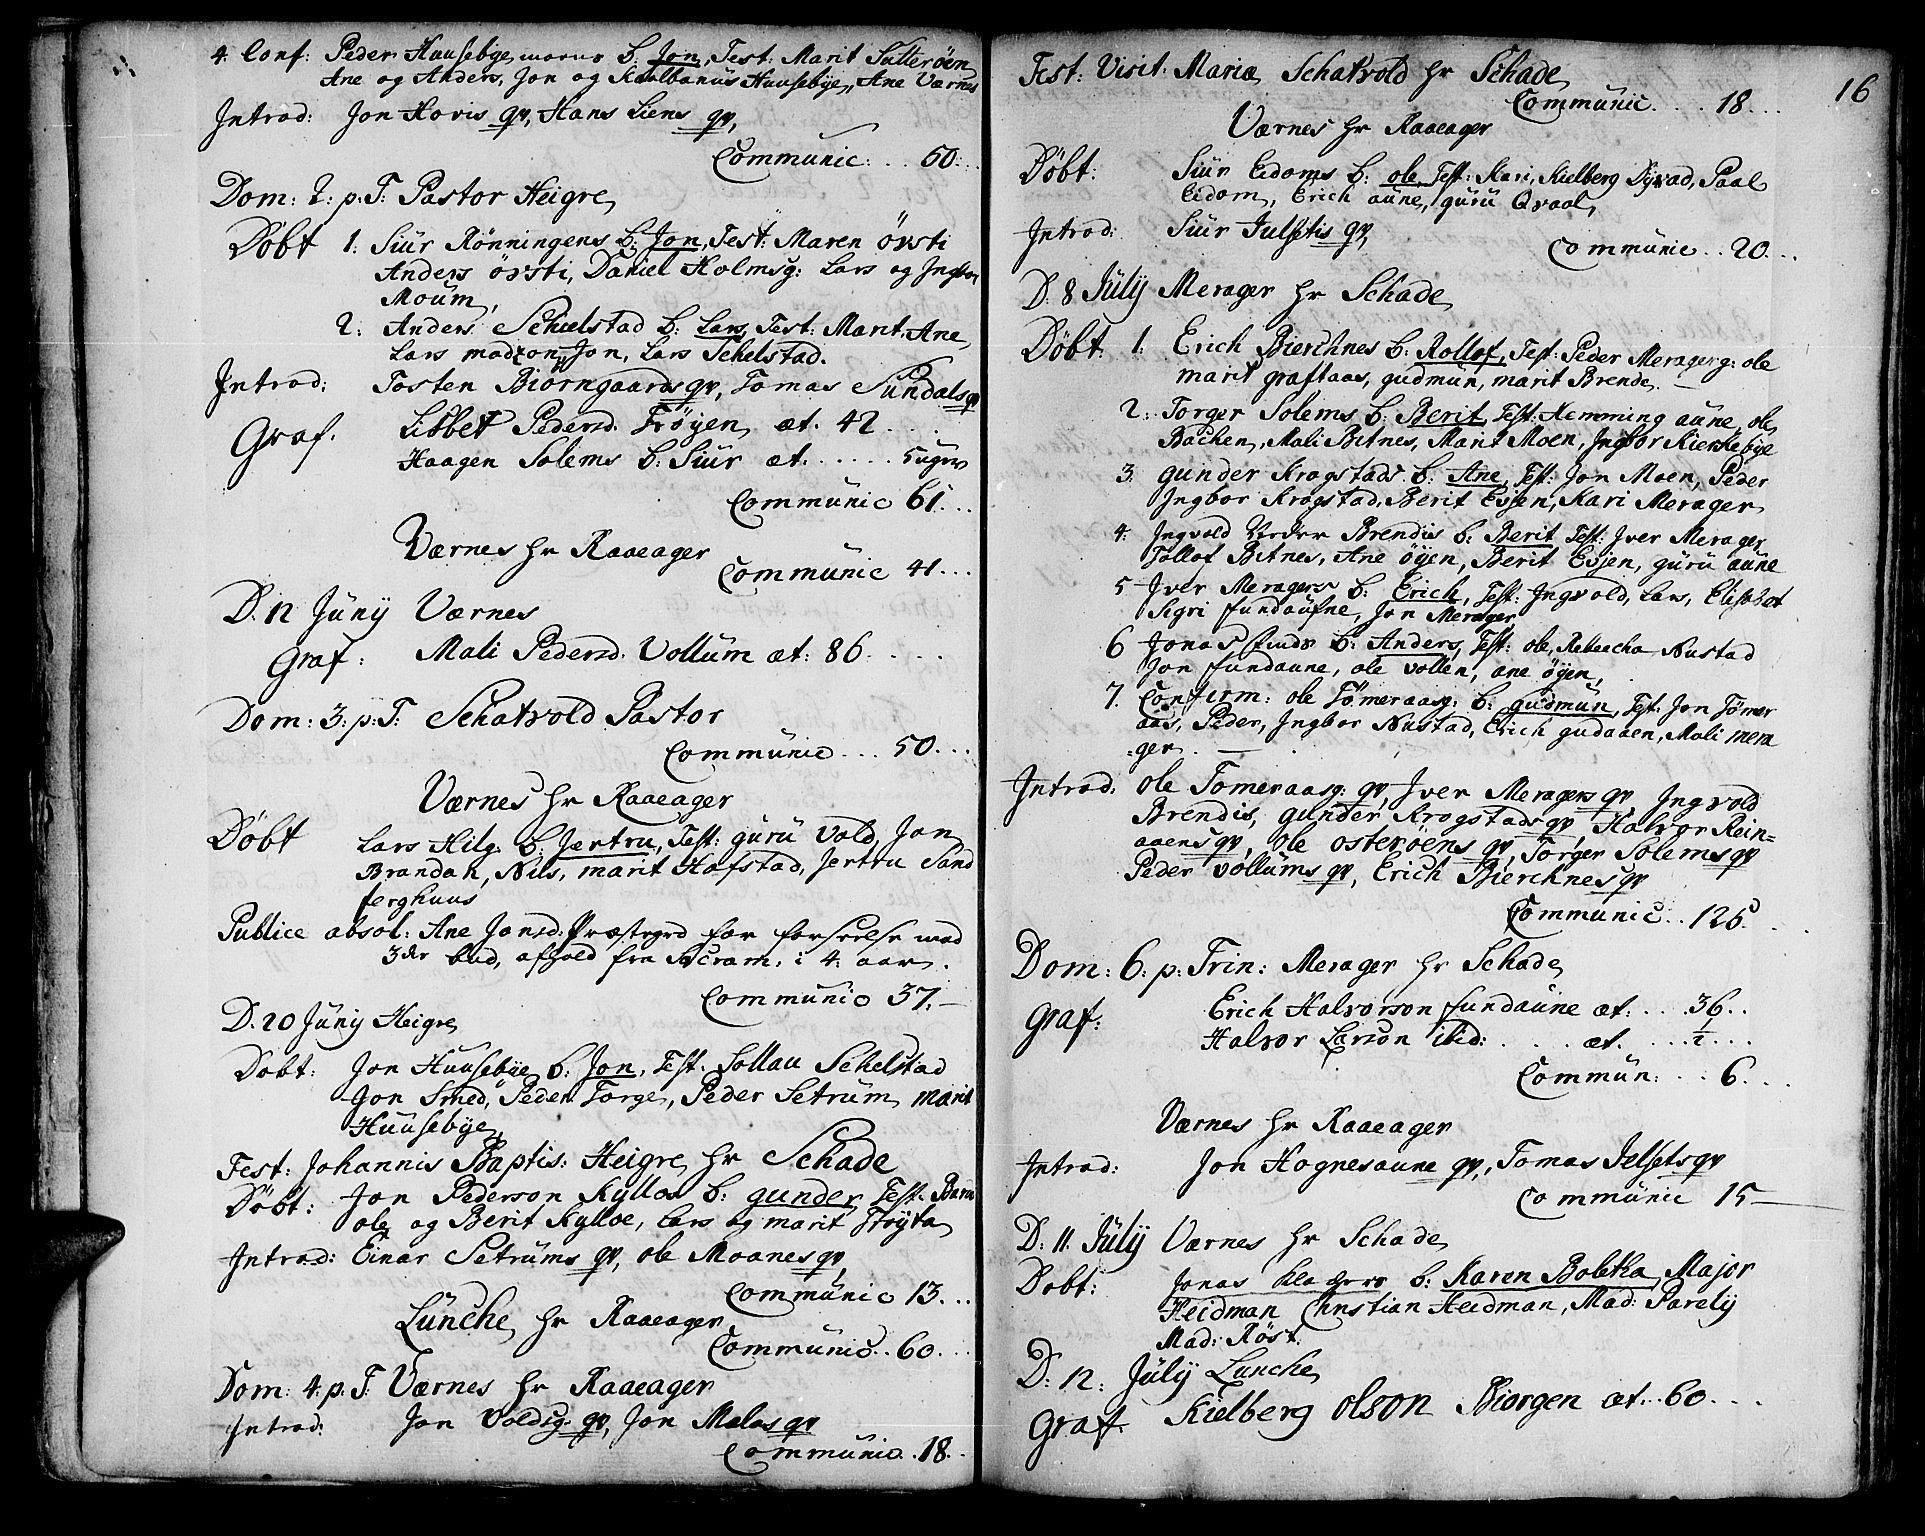 4. Conf: Peder Huusebye b: Jon, Test: Marit Sutterøen
Ane og Anders, Jon og Huusebye, Ane Værnes
Introd: Jon Hovis qv, Hans Liens qv,
Communic: . . 50. . .
Dom: 2: p. T: Pastor Heigre,
Døbt 1: Siur Rønningens b: Jon, Test: Maren Øvsti
Anders Øvsti, Daniel Holmsg: Lars og Ingbor
Moum,
2: Anders Schielstad b: Lars, Test: Marit, Ane,
Lars Jon, Lars Schelstad.
Introd: Tosten Biorngaards qv, Tomas Sundals qv
Graf. Libbet Pedersd. Frøyen æt. 42 . . .
Haagen Solems b: Siur æt. . . . . . 5 uger
Communic 61. . .
Værnes hr Raaeager
Communic 41. . .
D. 12 Junij Værnes
Graf: Mali Pedersd. Vollum æt: 86. . . .
Dom: 3: p: T: Schatvold Pastor
Communic . . . 50. . .
Værnes hr Raaeager
Døbt Lars Hilg: b: Jertru, Test: guru Vold, Jon
Brandah, Nils, marit Hofstad, Jertru Sand
ferghuus
Publice absol: Ane Jonsd: Præstegrd for forseelse mod
3die bud, afhold fra Sacram. i 4. aar.
Communic 37. –
D. 20 Junij Heigre,
Døbt: Jon Huusebye b: Jon, Test. Sollau Schelstad
Jon Smed, Peder Torge, Peder Setrum, marit
Huusebye
Fest: Johannis Baptis: Heigre, hr Schade
Døbt: Jon Pederson Kylloe b: gunder, Test.
ole, og Berit Kylloe, Lars og marit Frøyta
Introd: Einar Setrums qv, ole Moanes qv,
Communic 13. . .
Lunche, hr Raaeager
Communic . . 60. . .
Dom: 4. p. T. Værnes hr Raaeager
Introd: Jon Voldsg. qv, Jon Malas qv
Communic . . 18. .
16
Fest: Visit. Mariæ, Schatvold hr Schade,
Communic. . . . 18. . .
Værnes hr Raaeager
Døbt: Siur Eidoms b: ole, Test: Kari, Kielberg Dyvad, Paal
Eidom, Erich aune, guru Qvaal,
Introd: Siur Julsetis qv,
Communic . . 20. . .
D. 8 Julij Merager hr Schade,
Døbt. 1: Erich Bierchnes b: Rollof, Test: Peder Meragerg: ole
marit graftaas, gudmun, marit Brende.
2: Torger Solems b: Berit, Test: Hemming aune, ole
Bachen, Mali Bitnes, Marit Moen, Ingbor Kierkebye
3: gunder Krogstads b: Ane, Test: Jon Moen, Peder
Ingbor Krogstad, Berit Evjen, Kari Merager,
4: Ingvold Brendiis b: Berit Test: Jver Merager
Tollof Bitnes, Ane øyen, Berit Evjen, guru aune
5 Jver Meragers b: Erich, Test: Ingvold, Lars, Elisabet
Sigri fundaune, Jon Merager
6 Jonas funds b: Anders, Test: ole, Rebecha Nustad
Jon fundaune, ole vollen, ane øyen,
7. Confirm: ole Tømeraasg: b: gudmun, Test: Jon Tømer
aas, Peder, Ingbor Nustad, Erich gudaaen, Mali mera
=ger.
Introd: ole Tomeraasg: qv, Jver Meragers qv, Ingvold
Brendiis, gunder Krogstads qv, Halvor Rein=
aaens qv, ole osterøens qv, Torger Solems qv
Peder vollums qv, Erich Bierchnes qv
Communic. . 126. . .
Dom: 6: p: Trin: Merager hr Schade,
Graf: Erich Halvorson fundaune æt: . . . 36. .
Halvor Larson ibid: . . . . æt. . . . . ½ . . .
Commun: . . . 6. . .
Værnes hr Raaeager
Introd: Jon Hognesaune qv, Tomas Jelsets qv
Communic 15 –
D. 11. Julij Værnes hr Schade,
Døbt: Jonas b: Karen Boletha, Major
Heidman Christian Heidman, Mad: Parelij
Mad: Røst.
D. 12: Julij Lunche,
Graf. Kielberg olson Biorgen æt. . . 60. . . .